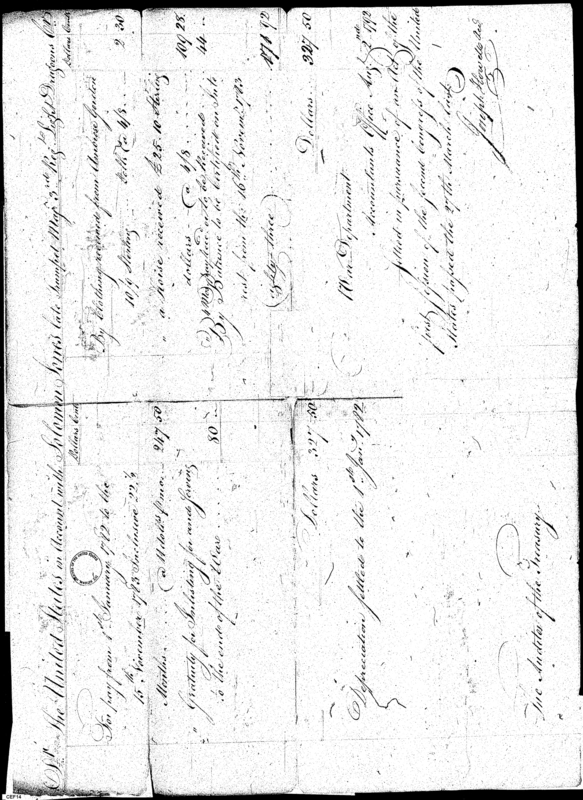 Dr. The United States in Account with Solomon Jones late Trumpet Majr. 3rd Regt. Light Dragoons Cr.
Dollars Cents
For pay from 1st January 1782 to the
15th November 1783 Inclusive 22½
Months @ 11 dolls p mo. 247 50
" Gratuity for Inlisting for and serving
to the end of the War 80 "
Dollars 327 50
Depreciation settled to the 1st Jany 1782
The Auditor of the Treasury
Dollars Cents
By Clothing received from
10/9 Sterling @ 4/8 2 30
" a Horse received £25.10 Sterling
dollars @ 4/8 109 28
44 "
By Balance to be certified on Inte
rest from the 16th Novem 1783
171 92
Dollars 327 50
War Department
Accountants Office Augt 2nd 1792
settled in pursuance of an Act of the
first session of the second Congress of the United
States passed the 27th March last
Joseph Howell
CEF14